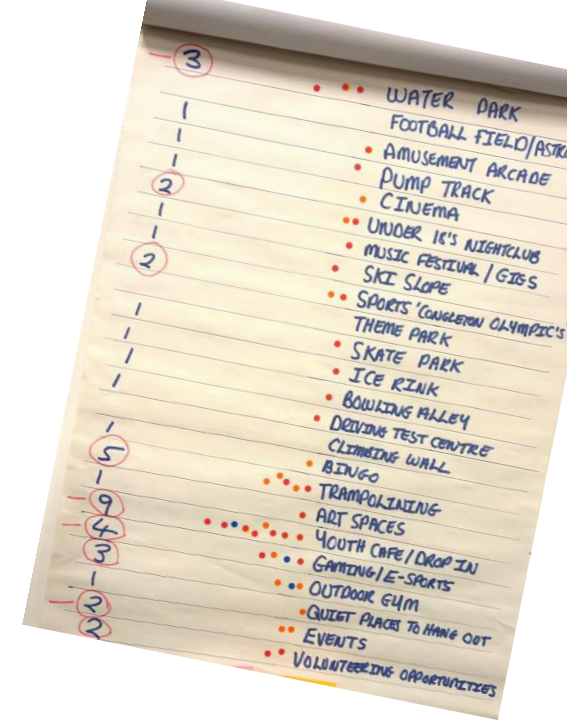 3 WATER PARK
FOOTBALL FIELD/ASTR
1 AMUSEMENT ARCADE
1 PUMP TRACK
1 CINEMA
2 UNDER 18'S NIGHTCLUB
1 MUSIC FESTIVAL / GIGS
1 SKI SLOPE
2 SPORTS 'CONGLETON OLYMPIC'S
THEME PARK
1 SKATE PARK
1 ICE RINK
1 BOWLING ALLEY
1 DRIVING TEST CENTRE
CLIMBING WALL
1 BINGO
5 TRAMPOLINING
1 ART SPACES
9 YOUTH CAFE / DROP IN
4 GAMING / E-SPORTS
3 OUTDOOR GYM
1 QUIET PLACES TO HANG OUT
2 EVENTS
2 VOLUNTEERING OPPORTUNITIES